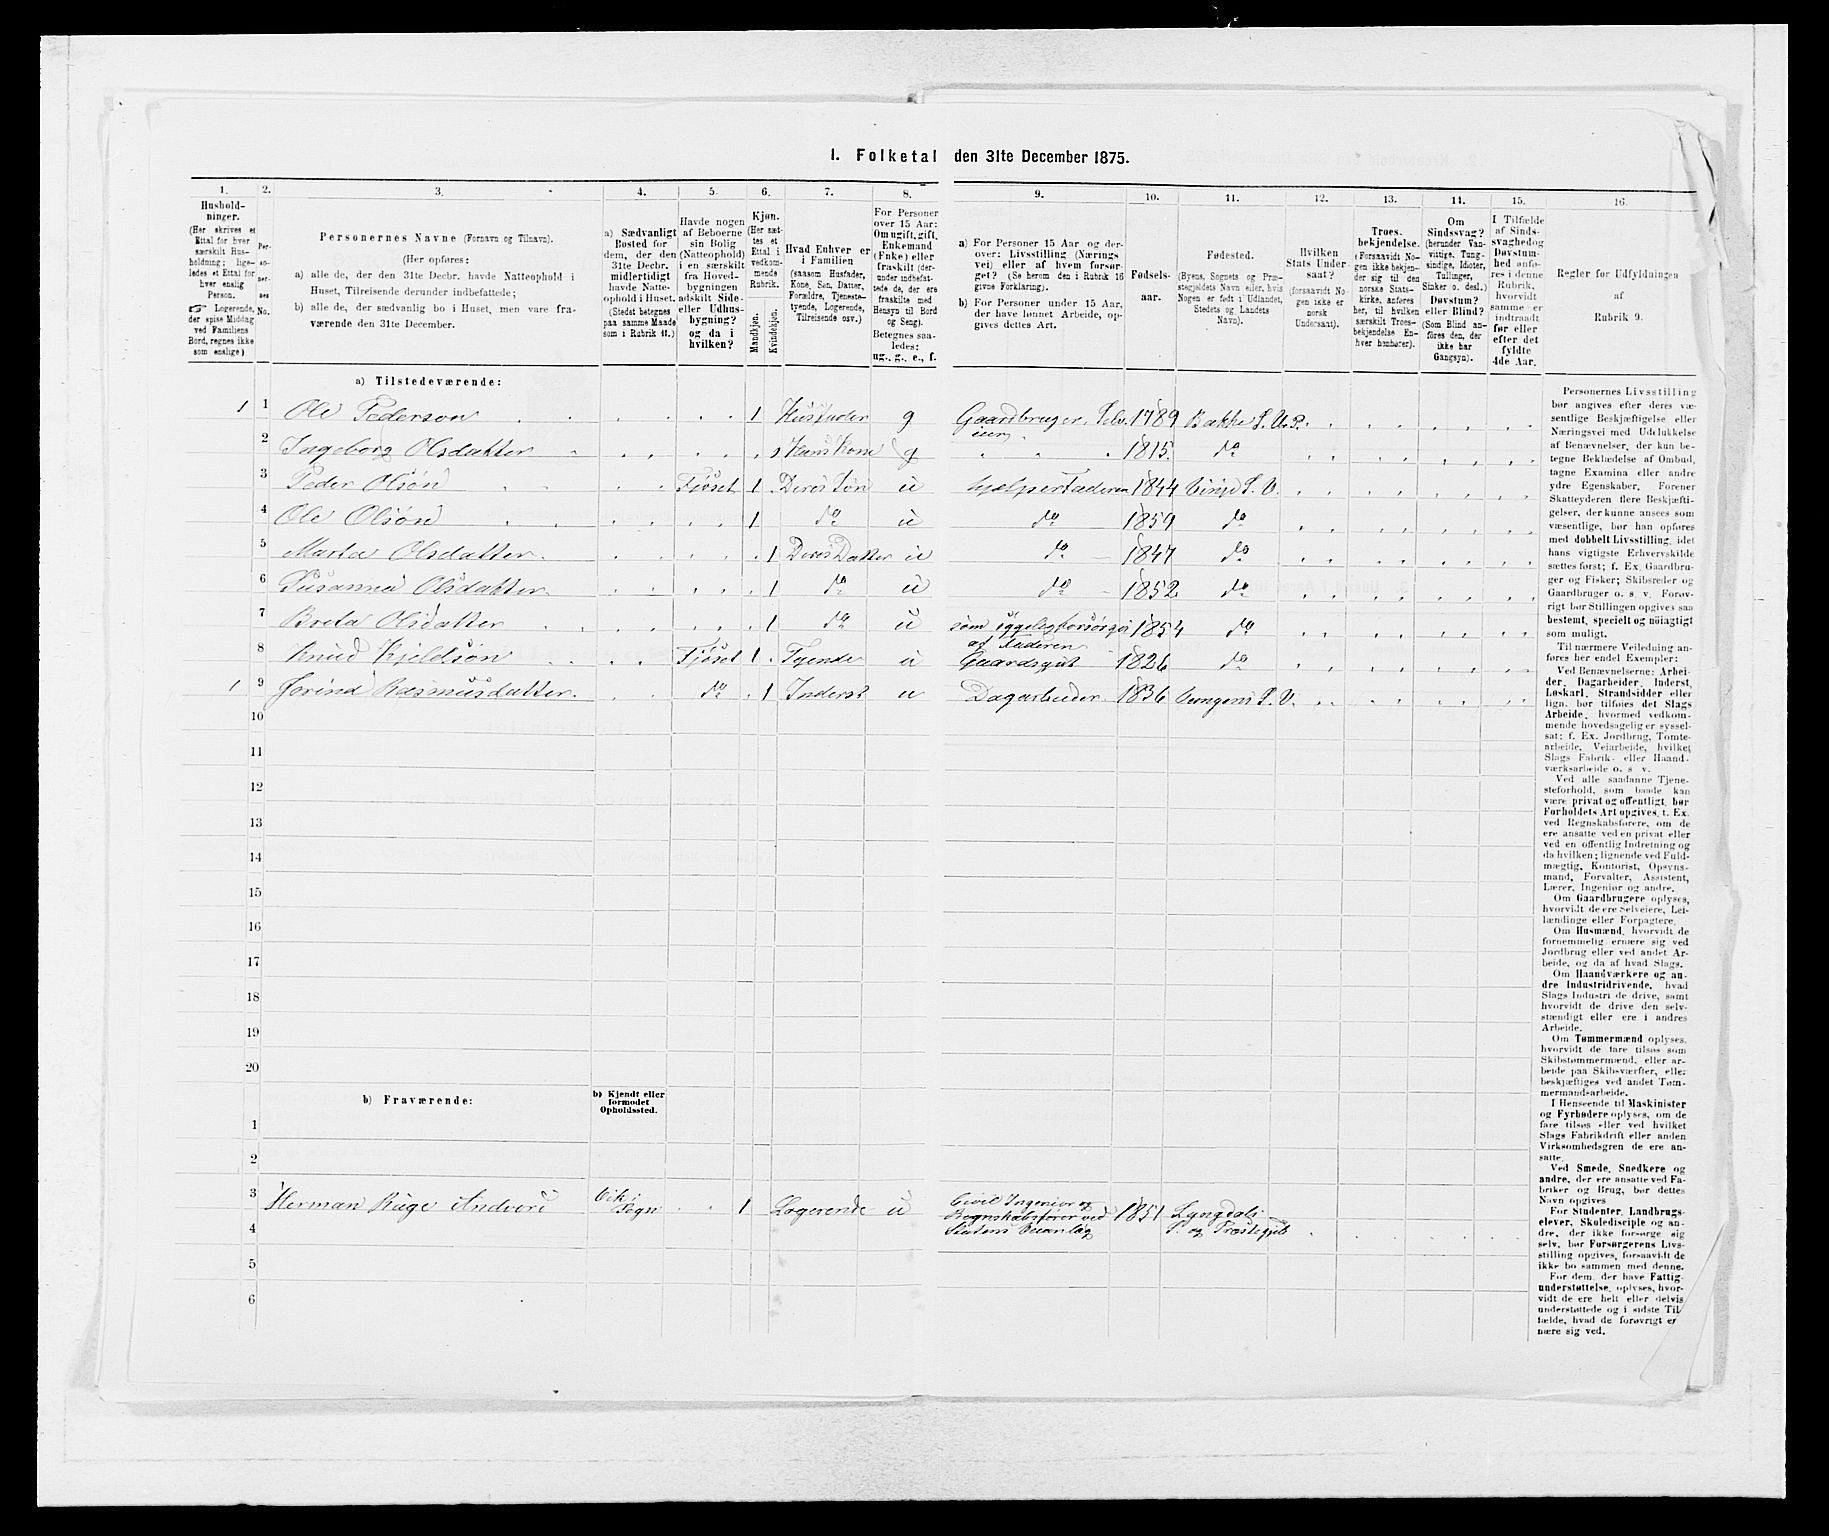 1. Folketal den 31te December 1875.
1. 2. 3. 4. 5. 6. 7. 8. 9. 10. 11. 12. 13. 14. 15. 16.
Hushold-
ninger.
(Her skrives et
Ettal for hver
særskilt Hus-
holdning; lige-
ledes et Ettal for
hver enslig
Person.
☞ Logerende,
der spise Middag
ved Familiens
Bord, regnes ikke
som enslige.)
Per-
so-
ner-
nes
No.
Personernes Navne (Fornavn og Tilnavn).
(Her opføres:
a) alle de, der den 31te Decbr. havde Natteophold i
Huset, Tilreisende derunder indbefattede;
b) alle de, der sædvanlig bo i Huset, men vare fra-
værende den 31te December.
a) Sædvanligt
Bosted for
dem, der den
31te Decbr.
midlertidigt
havde Natte-
ophold i Huset.
(Stedet betegnes
paa samme Maade
som i Rubrik 11.)
Havde nogen
af Beboerne
sin Bolig
(Natteophold)
i en særskilt
fra Hoved-
bygningen
adskilt Side-
eller Udhus-
bygning?
og da i
hvilken?
Kjøn.
(Her sæt-
tes et
Ettal i
vedkom-
mende
Rubrik.
Mandkjøn.
Kvindekjøn.
Hvad Enhver er
i Familien
(saasom Husfader,
Kone, Søn, Datter,
Forældre, Tjeneste-
tyende, Logerende,
Tilreisende osv.)
For Personer
over 15 Aar:
Om ugift, gift,
Enkemand
(Enke) eller
fraskilt (der-
under indbefat-
tede de, der ere
fraskilte med
Hensyn til Bord
og Seng).
Betegnes saa-
ledes:
ug., g., e., f.
a) For Personer 15 Aar og der-
over: Livsstilling (Nærings
vei) eller af hvem forsør-
get? (Se herom den i Rubrik 16
givne Forklaring).
b) For Personer under 15 Aar,
der have lønnet Arbeide, op-
gives dettes Art.
Fødsels-
aar.
Fødested.
(Byens, Sognets og Præ-
stegjeldets Navn eller, hvis
Nogen er født i Udlandet,
Stedets og Landets
Navn).
Hvilken
Stats Under-
saat?
(forsaavidt No-
gen ikke er
norsk
Undersaat).
Troes-
bekjendelse.
(Forsaavidt No-
gen ikke bekjen-
der sig til den
norske Stats-
kirke, anføres
her, til hvilken
særskilt Troes-
bekjendelse En-
hver henhører).
Om
Sindssvag?
(herunder Van-
vittige, Tung-
sindige, Idioter,
Tullinger,
Sinker o. desl.)
Døvstum?
eller Blind?
(Som Blind an-
føres den, der
ikke har
Gangsyn).
I Tilfælde
af Sinds-
svaghed og
Døvstum-
hed anfø-
res i denne
Rubrik,
hvorvidt
samme er
indtraadt
før eller
efter det
fyldte
4de Aar.
Regler før Udfyldningen
af
Rubrik 9.
a) Tilstedeværende:
1 1 Ole Pederson 1 Husfader g Gaardbruger, Selv- 1789 Bakke S. V. P.
eier
2 Ingeborg Olsdatter 1 Hans Kone g 1815 do
3 Peder Olsøn Fjøset 1 Deres Søn u hjelper Faderen 1844 Vinje S. V.
4 Ole Olsøn 1 do u do 1859 do
5 Marta Olsdatter 1 Deres Datter u do 1847 do
6 Susanna Olsdatter 1 do u do 1852 do
7 Breta Olsdatter 1 do u 1854 do
af Faderen
8 Knud Kjeldsøn Fjøset 1 Tyende u Gaardsgut 1826 do
1 9 Jorina Rasmusdatter do 1 Inderst u Dagarbeider 1836 S. V.
10
11
12
13
14
15
16
17
18
19
20
b) Fraværende:
b) Kjendt eller
formodet
Opholdssted.
1
2
3 Herman Ruge Vik i
Sogn 1 Logerende u Civil Ingeniør og
Regnskabsfører ved
Statens Veianlæg 1851 Lyngdals
S. og Præstegjeld
4
5
6
Personernes Livsstilling
bør angives efter deres væ-
sentlige Beskjæftigelse eller
Næringsvei med Udelukkelse
af Benævnelser, der kun be-
tegne Beklædelse af Ombud,
tagne Examina eller andre
ydre Egenskaber. Forener
Skatteyderen flere Beskjæfti-
gelser, der kunne ansees som
væsentlige, bør han opføres
med dobbelt Livsstilling, idet
hans vigtigste Erhvervskilde
sættes først; f. Ex. Gaardbru-
ger og Fisker; Skibsreder og
Gaardbruger o. s. v. Forøv-
rigt bør Stillingen opgives saa
bestemt, specielt og nøiagtigt
som muligt.
Til nærmere Veiledning an-
føres her endel Exempler:
Ved Benævnelserne: Arbei-
der, Dagarbeider, Inderst,
Løskarl, Strandsidder eller
lign. bør tilføies det Slags
Arbeide, hvormed vedkom-
mende hovedsagelig er syssel-
sat; f. Ex. Jordbrug, Tomte-
arbeide, Veiarbeide, hvilket
Slags Fabrik- eller Haand-
værksarbeide o. s. v.
Ved alle saadanne Tjene-
steforhold, som baade kan
være privat og offentligt, bør
Forholdets Art opgives, t. Ex.
ved Regnskabsførere, om de
ere ansatte ved en privat eller
ved en offentlig Indretning og
da hvilken; lignende ved Fuld-
mægtig, Kontorist, Opsyns-
mand, Forvalter, Assistent,
Lærer, Ingeniør og andre.
Om Gaardbrugere oplyses,
hvorvidt de ere Selveiere, Lei-
lændinge eller Forpagtere.
Om Husmænd, hvorvidt de
fornemmelig ernære sig ved
Jordbrug eller ved andet Ar-
beide, og da af hvad Slags.
Om Haandværkere og an-
dre Industridrivende, hvad
Slags Industri de drive, samt
hvorvidt de drive den selv-
stændigt eller ere i andres
Arbeide.
Om Tømmermænd oplyses,
hvorvidt de fare tilsøs som
Skibstømmermænd, eller ar-
beide paa Skibsværfter, eller
beskjæftiges ved andet Tøm-
mermandsarbeide.
I Henseende til Maskinister
og Fyrbødere oplyses, om de
fare tilsøs eller ved hvilket
Slags Fabrikdrift eller anden
Virksomhedsgren de ere an-
satte.
Ved Smede, Snedkere og
andre, der ere ansatte ved Fa-
briker og Brug, bør dettes
Navn opgives
For Studenter, Landbrugs-
elever, Skoledisciple og an-
dre, der ikke forsørge sig
selv, bør Forsørgerens Livs-
stilling opgives, forsaavidt de
ikke bo sammen med denne.
For dem, der have Fattig-
understøttelse, oplyses, hvor-
vidt de ere helt eller delvis
understøttede og i sidste Til-
fælde, hvad de forøvrigt er-
nære sig ved.